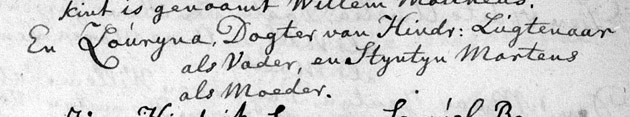 kint is genaamt Willem
En Loúryna, Dogter van Hindr: Lúgtenaar
als Vader, en Styntyn Martens
als Moeder.